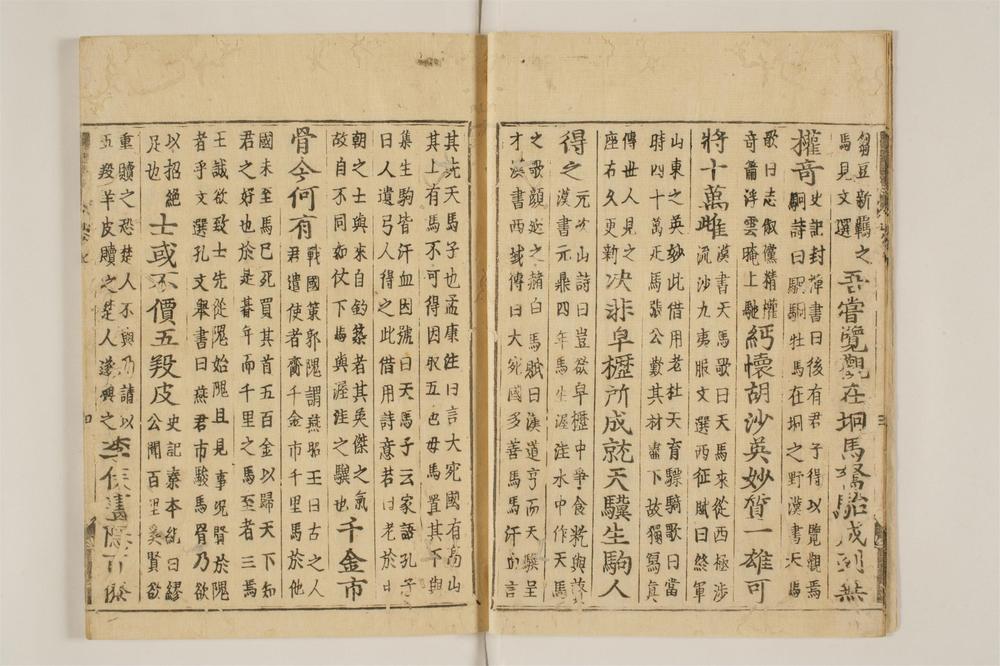 芻豆新羈之
馬見文選
吾嘗覽觀在坰馬駑駘成列無
權奇
史記封禪書曰後有君子得以覽觀焉
駉詩曰駉駉牡馬在坰之野漢書天馬
歌曰志俶儻精權
奇籋浮雲晻上馳
緬懷胡沙英妙質一雄可
將十萬雌
漢書天馬歌曰天馬來從西極涉
流沙九夷服文選西征賦曰終軍
山東之英妙此借用老杜天育驃騎歌曰當
時四十萬匹馬張公歎其材盡下故獨寫真
傳世人見之
座右久更新
決非皁櫪所成就天驥生駒人
得之
元次山詩曰豈欲皁櫪中爭食籺與
漢書元鼎四年馬生渥洼水中作天馬
之歌顔延之赭白馬賦曰漢道亨而天驥呈
才漢書西域傳曰大宛國多善馬馬汗血言
其先天馬子也孟康注曰言大宛國有高山
其上有馬不可得因取五色母馬置其下與
集生駒皆汗血因號曰天馬子云家語孔子
曰人遺弓人得之此借用詩意若曰老於中
朝之士與來自釣築者其英傑之氣
故自不同如仗下馬與渥洼之驥也
千金市
骨今何有
戰國策郭隗謂燕昭王曰古之人
君遣使者齎千金市千里馬於他
國未至馬已死買其首五百金以歸天下知
君之好也於是朞年而千里之馬至者三焉
王誠欲致士先從隗始隗且見事況賢於隗
者乎文選孔文舉書曰燕君市駿馬骨乃欲
以招絶
足也
士或不價五羖皮
史記秦本紀曰繆
公聞百里奚賢欲
重贖之恐楚人不與乃請以
五羖羊皮贖之楚人遂與之
李侯畫隱百僚